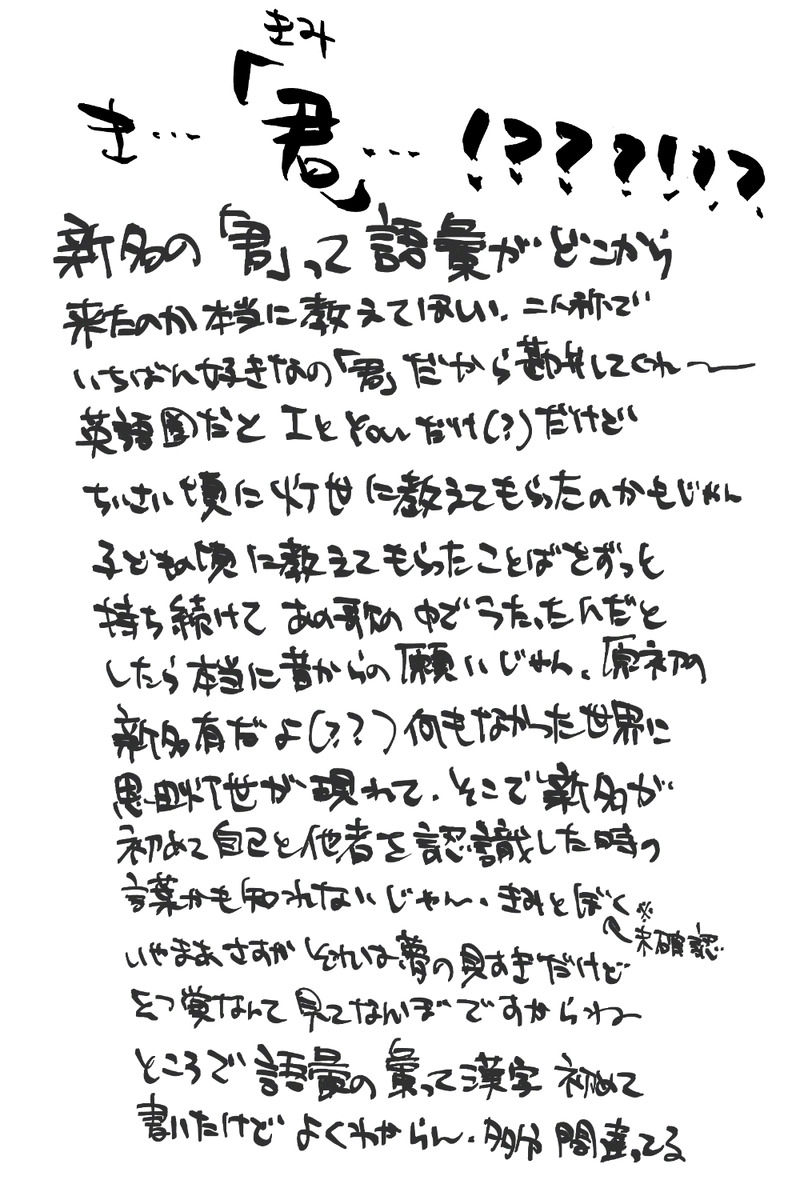 きみ
き…「君」… !???!!?
新名の「君」って語彙がどこから
来たのか本当に教えてほしい、二人称で
いちばん好きなの「君」だから勘弁してくれ〜
英語圏だと IとYouだけ(?)だけど
ちいさい頃に灯世に教えてもらったのかもじゃん
子どもの頃に教えてもらったことばをずっと
持ち続けて あの歌の中でうたったんだと
したら本当に昔からの「願い」じゃん、原初の
新名有だよ(??)何もなかった世界に
恩田灯世が現れて、そこで新名が
初めて自己と他者を認識した時の
言葉かも知れないじゃん、きみとぼく※
未確認
いやまあさすがそれは夢の見すぎだけど
幻覚なんて見てなんぼですからね〜
ところで語彙の彙って漢字 初めて
書いたけどよくわからん、多分間違ってる